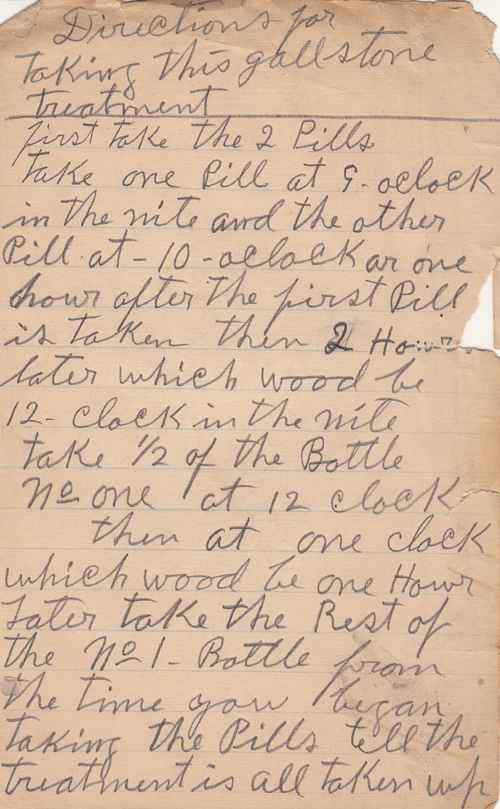 Directions for
taking this gallstone
treatment
first take the 2 Pills
take one Pill at 9-oclock
in the nite and the other
Pill at-10-oclock or one
hour after the first Pill
is taken then 2 Hours
later which wood be
12-clock in the nite
take 1/2 of the Bottle
No one at 12 clock
then at one clock
which wood be one Howr
Later take the Rest of
the No 1- Bottle from
the time you began
taking the Pills tell the
treatment is all taken up